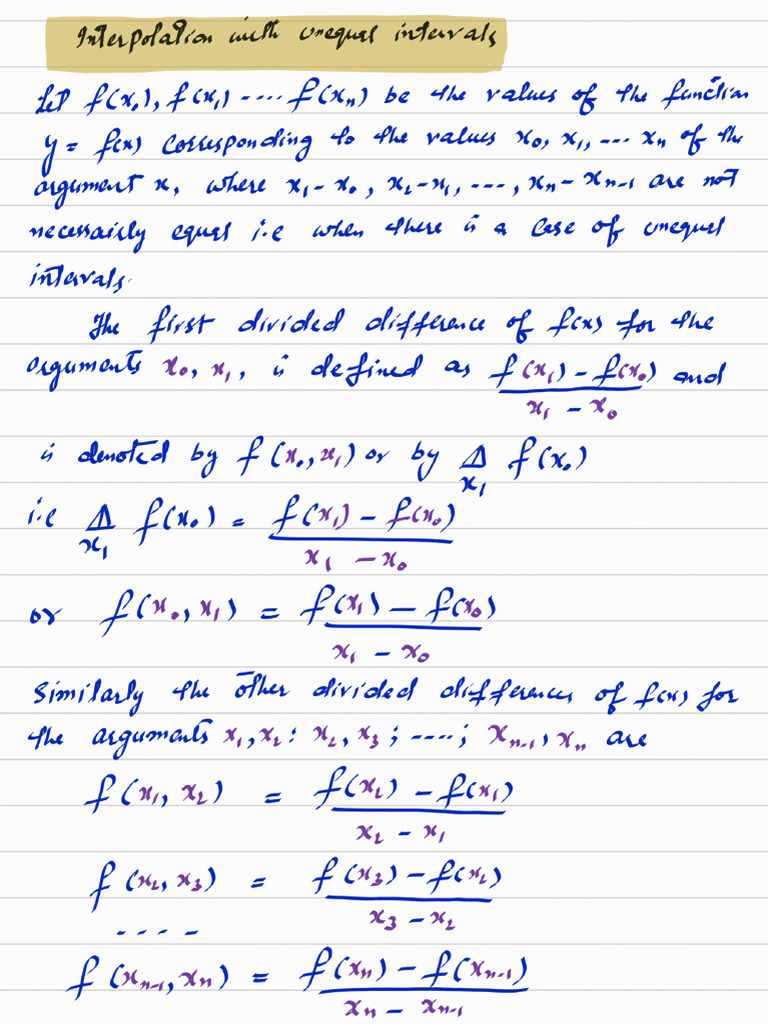 Interpolation with unequal intervals
Let f(x₀), f(x₁) ---- f(xₙ) be the values of the function
y = f(x) corresponding to the values x₀, x₁, --- xₙ of the
argument x, where x₁-x₀, x₂-x₁, ---, xₙ-xₙ₋₁ are not
necessairly equal i.e when there is a case of unequal
intervals.
The first divided difference of f(x) for the
arguments x₀, x₁, is defined as (f(x₁) - f(x₀))/(x₁ - x₀) and
is denoted by f(x₀, x₁) or by Δ_x₁ f(x₀)
i.e Δ_x₁ f(x₀) = (f(x₁) - f(x₀))/(x₁ - x₀)
or f(x₀, x₁) = (f(x₁) - f(x₀))/(x₁ - x₀)
Similarly the other divided differences of f(x) for
the arguments x₁, x₂: x₂, x₃; ----; xₙ₋₁, xₙ are
f(x₁, x₂) = (f(x₂) - f(x₁))/(x₂ - x₁)
f(x₂, x₃) = (f(x₃) - f(x₂))/(x₃ - x₂)
- - - -
f(xₙ₋₁, xₙ) = (f(xₙ) - f(xₙ₋₁))/(xₙ - xₙ₋₁)